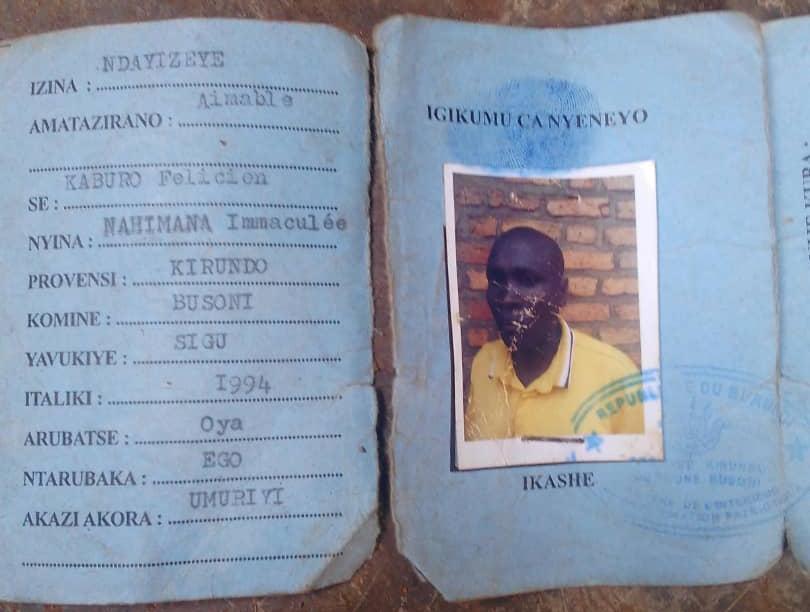 IZINA : NDAYIZEYE
AMATAZIRANO : Aimable
SE : KABURO Felicien
NYINA : NAHIMANA Immaculée
PROVENSI : KIRUNDO
KOMINE : BUSONI
YAVUKIYE : SIGU
ITALIKI : 1994
ARUBATSE : Oya
NTARUBAKA : EGO
AKAZI AKORA : UMURIYI
IGIKUMU CA NYENEYO
IKASHE